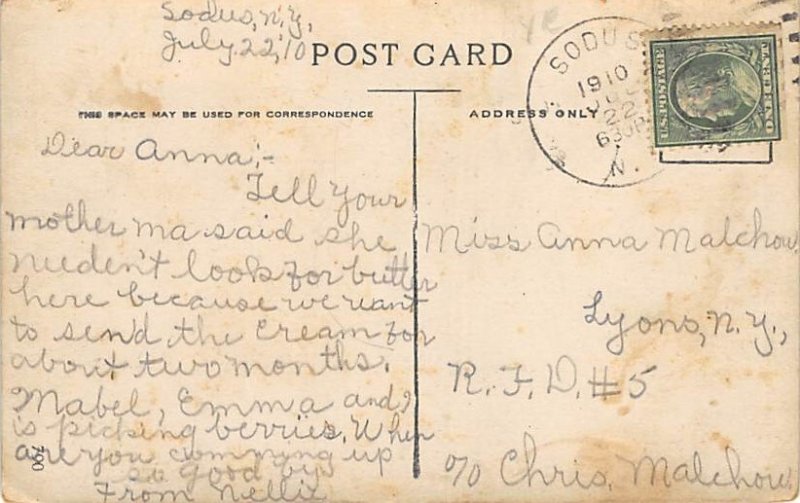 Sodus, N.Y,
July. 22, 10
POST CARD
THIS SPACE MAY BE USED FOR CORRESPONDENCE
ADDRESS ONLY
SODUS
1910
22
N.
U.S. POSTAGE
ONE CENT
Dear Anna;-
Tell Your
mother ma said she
needen't look for butter
here because we want
to send the cream for
about two months.
Mabel, Emma and I
is picking berries. When
are you comming up
so good by
From Nellie
700
Miss Anna Malchow
Lyons, N.Y.,
R.F.D. #5
c/o Chris. Malchow